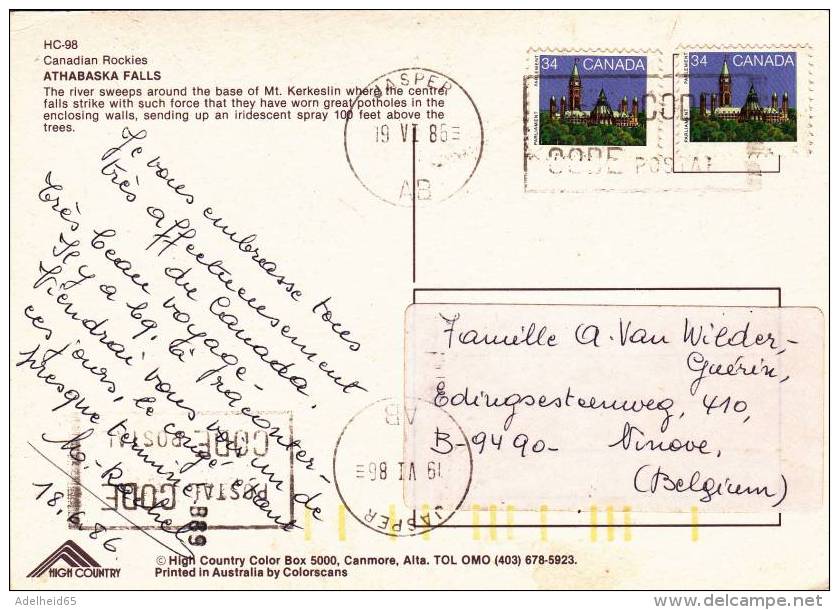 HC-98
Canadian Rockies
ATHABASKA FALLS
The river sweeps around the base of Mt. Kerkeslin where the center
falls strike with such force that they have worn great potholes in the
enclosing walls, sending up an iridescent spray 100 feet above the
trees.
Je vous embrasse tous
très affectueusement
du Canada.
Très beau voyage -
Il y a bq. à raconter -
Viendrai vous voir un de
ces jours, le congé étant
presque terminé
18.6.86
JASPER
19 VI 86
AB
34 CANADA
PARLIAMENT PARLEMENT
34 CANADA
PARLIAMENT PARLEMENT
CODE
CODE POSTAL
Famille A. Van Wilder-
Guérin,
Edingsesteenweg, 410,
B-9490- Ninove,
(Belgium)
AB
19 VI 86
JASPER
CODE POSTAL
POSTAL CODE
B89
HIGH COUNTRY
© High Country Color Box 5000, Canmore, Alta. TOL OMO (403) 678-5923.
Printed in Australia by Colorscans
© Adelheid65
delcampe.net